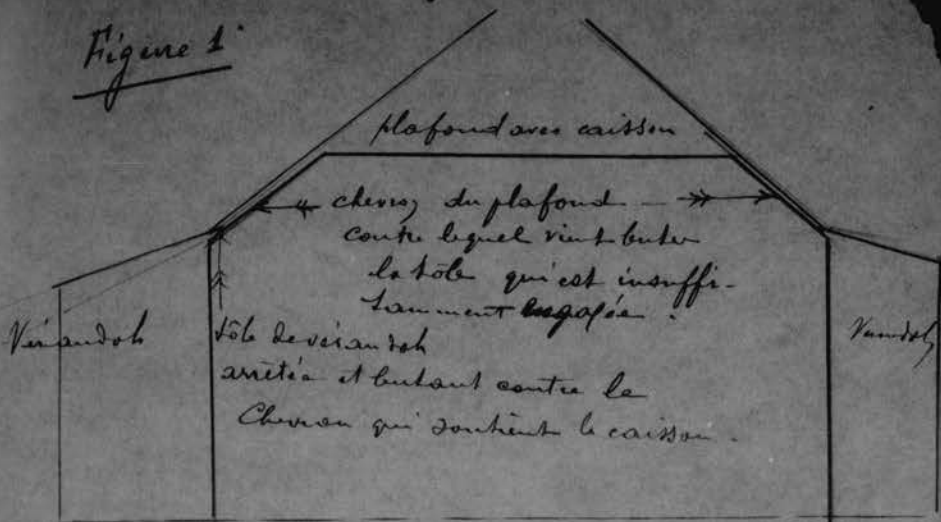 Figure 1
plafond avec caisson
chevron du plafond
contre lequel vient buter
la tôle qui est insuffi-
samment engagée.
Vérandah
Verandah
tôle de vérandah
arrêtée et butant contre le
Chevron qui soutient le caisson.